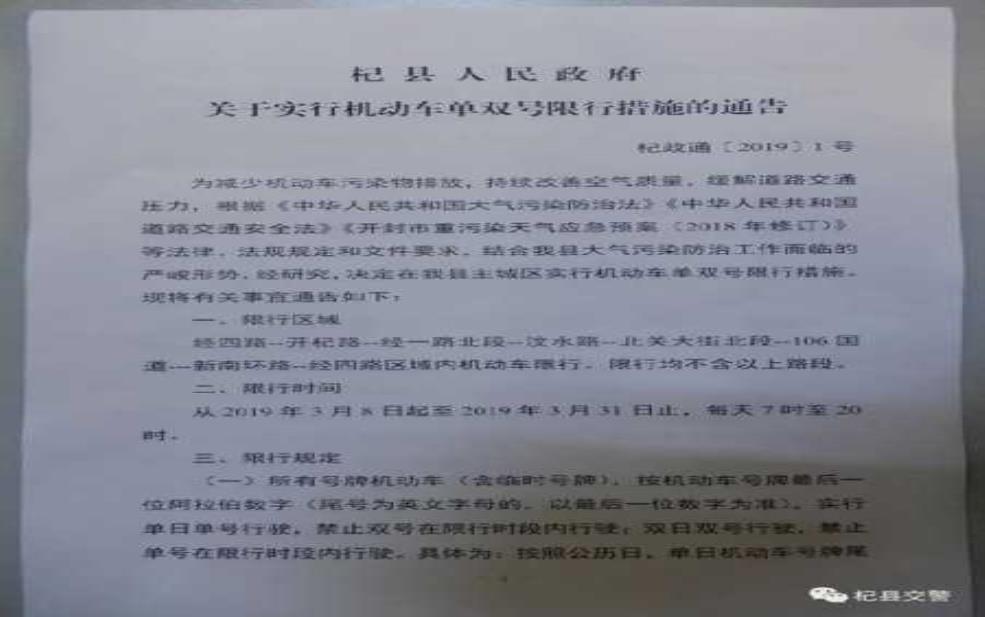 杞县人民政府
关于实行机动车单双号限行措施的通告
杞政通〔2019〕1号
为减少机动车污染物排放，持续改善空气质量，缓解道路交通
压力，根据《中华人民共和国大气污染防治法》《中华人民共和国
道路交通安全法》《开封市重污染天气应急预案（2018年修订）》
等法律、法规规定和文件要求，结合我县大气污染防治工作面临的
严峻形势，经研究，决定在我县主城区实行机动车单双号限行措施。
现将有关事宜通告如下：
一、限行区域
经四路--开杞路--经一路北段--汶水路--北关大街北段--106国
道--新南环路--经四路区域内机动车限行，限行均不含以上路段。
二、限行时间
从2019年3月8日起至2019年3月31日止，每天7时至20
时。
三、限行规定
（一）所有号牌机动车（含临时号牌），按机动车号牌最后一
位阿拉伯数字（尾号为英文字母的，以最后一位数字为准），实行
单日单号行驶，禁止双号在限行时段内行驶；双日双号行驶，禁止
单号在限行时段内行驶。具体为：按照公历日，单日机动车号牌尾
杞县交警